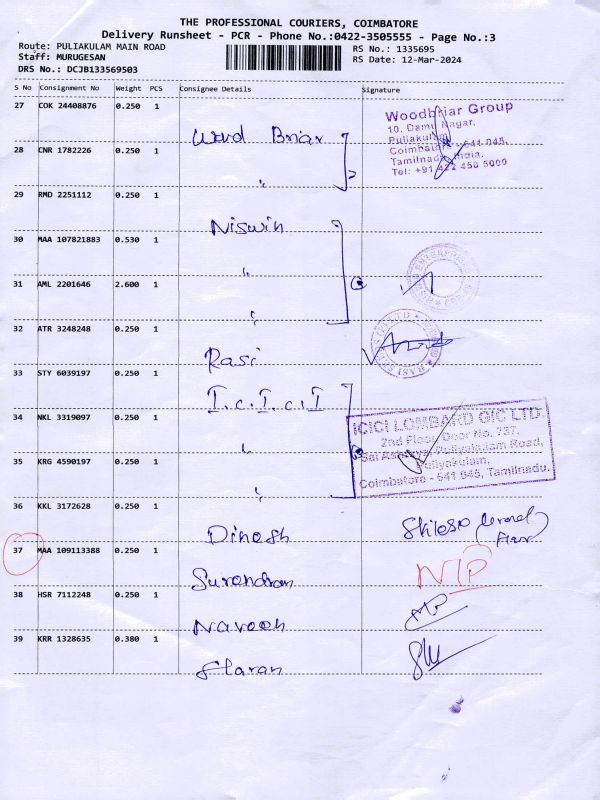 THE PROFESSIONAL COURIERS, COIMBATORE
Delivery Runsheet - PCR - Phone No.:0422-3505555 - Page No.:3
Route: PULIAKULAM MAIN ROAD
Staff: MURUGESAN
DRS No.: DCJB133569503
RS No.: 1335695
RS Date: 12-Mar-2024
S No Consignment No Weight PCS Consignee Details Signature
27 COK 24408876 0.250 1
Word Briar
Woodbriar Group
10, Damu Nagar,
Puliakulam
Coimbatore - 641 045,
Tamilnadu, India.
Tel: +91 422 450 5000
28 CNR 1782226 0.250 1
"
29 RMD 2251112 0.250 1
Niswin
30 MAA 107821883 0.530 1
"
ENTERPRISES
31 AML 2201646 2.600 1
"
32 ATR 3248248 0.250 1
Rasi
33 STY 6039197 0.250 1
I.C.I.C.I
34 NKL 3319097 0.250 1
"
ICICI LOMBARD GIC LTD.
2nd Floor, Door No. 737,
Puliyakulam Road,
Puliyakulam,
Coimbatore - 641 045, Tamilnadu.
35 KRG 4590197 0.250 1
"
36 KKL 3172628 0.250 1
Dinesh
37 MAA 109113388 0.250 1
Surendran
NIP
38 HSR 7112248 0.250 1
Naveen
39 KRR 1328635 0.380 1
Sharan